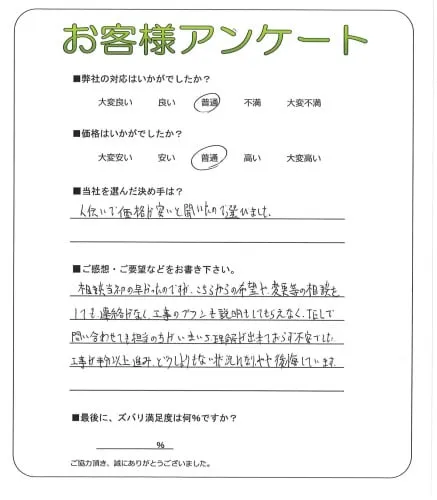 お客様アンケート
■弊社の対応はいかがでしたか？
大変良い 良い 普通 不満 大変不満
■価格はいかがでしたか？
大変安い 安い 普通 高い 大変高い
■当社を選んだ決め手は？
人伝いで価格が安いと聞いたので選びました。
■ご感想・ご要望などをお書き下さい。
相談当初の早かったのですが、こちらからの希望や、変更等の相談を
しても連絡がなく、工事のプランも説明もしてもらえなく、TELして
問い合わせても担当の方がいまいち理解が出来ておらず不安でした。
工事が半分以上進み、どうしようもない状況になりやや後悔しています。
■最後に、ズバリ満足度は何%ですか？
%
ご協力頂き、誠にありがとうございました。